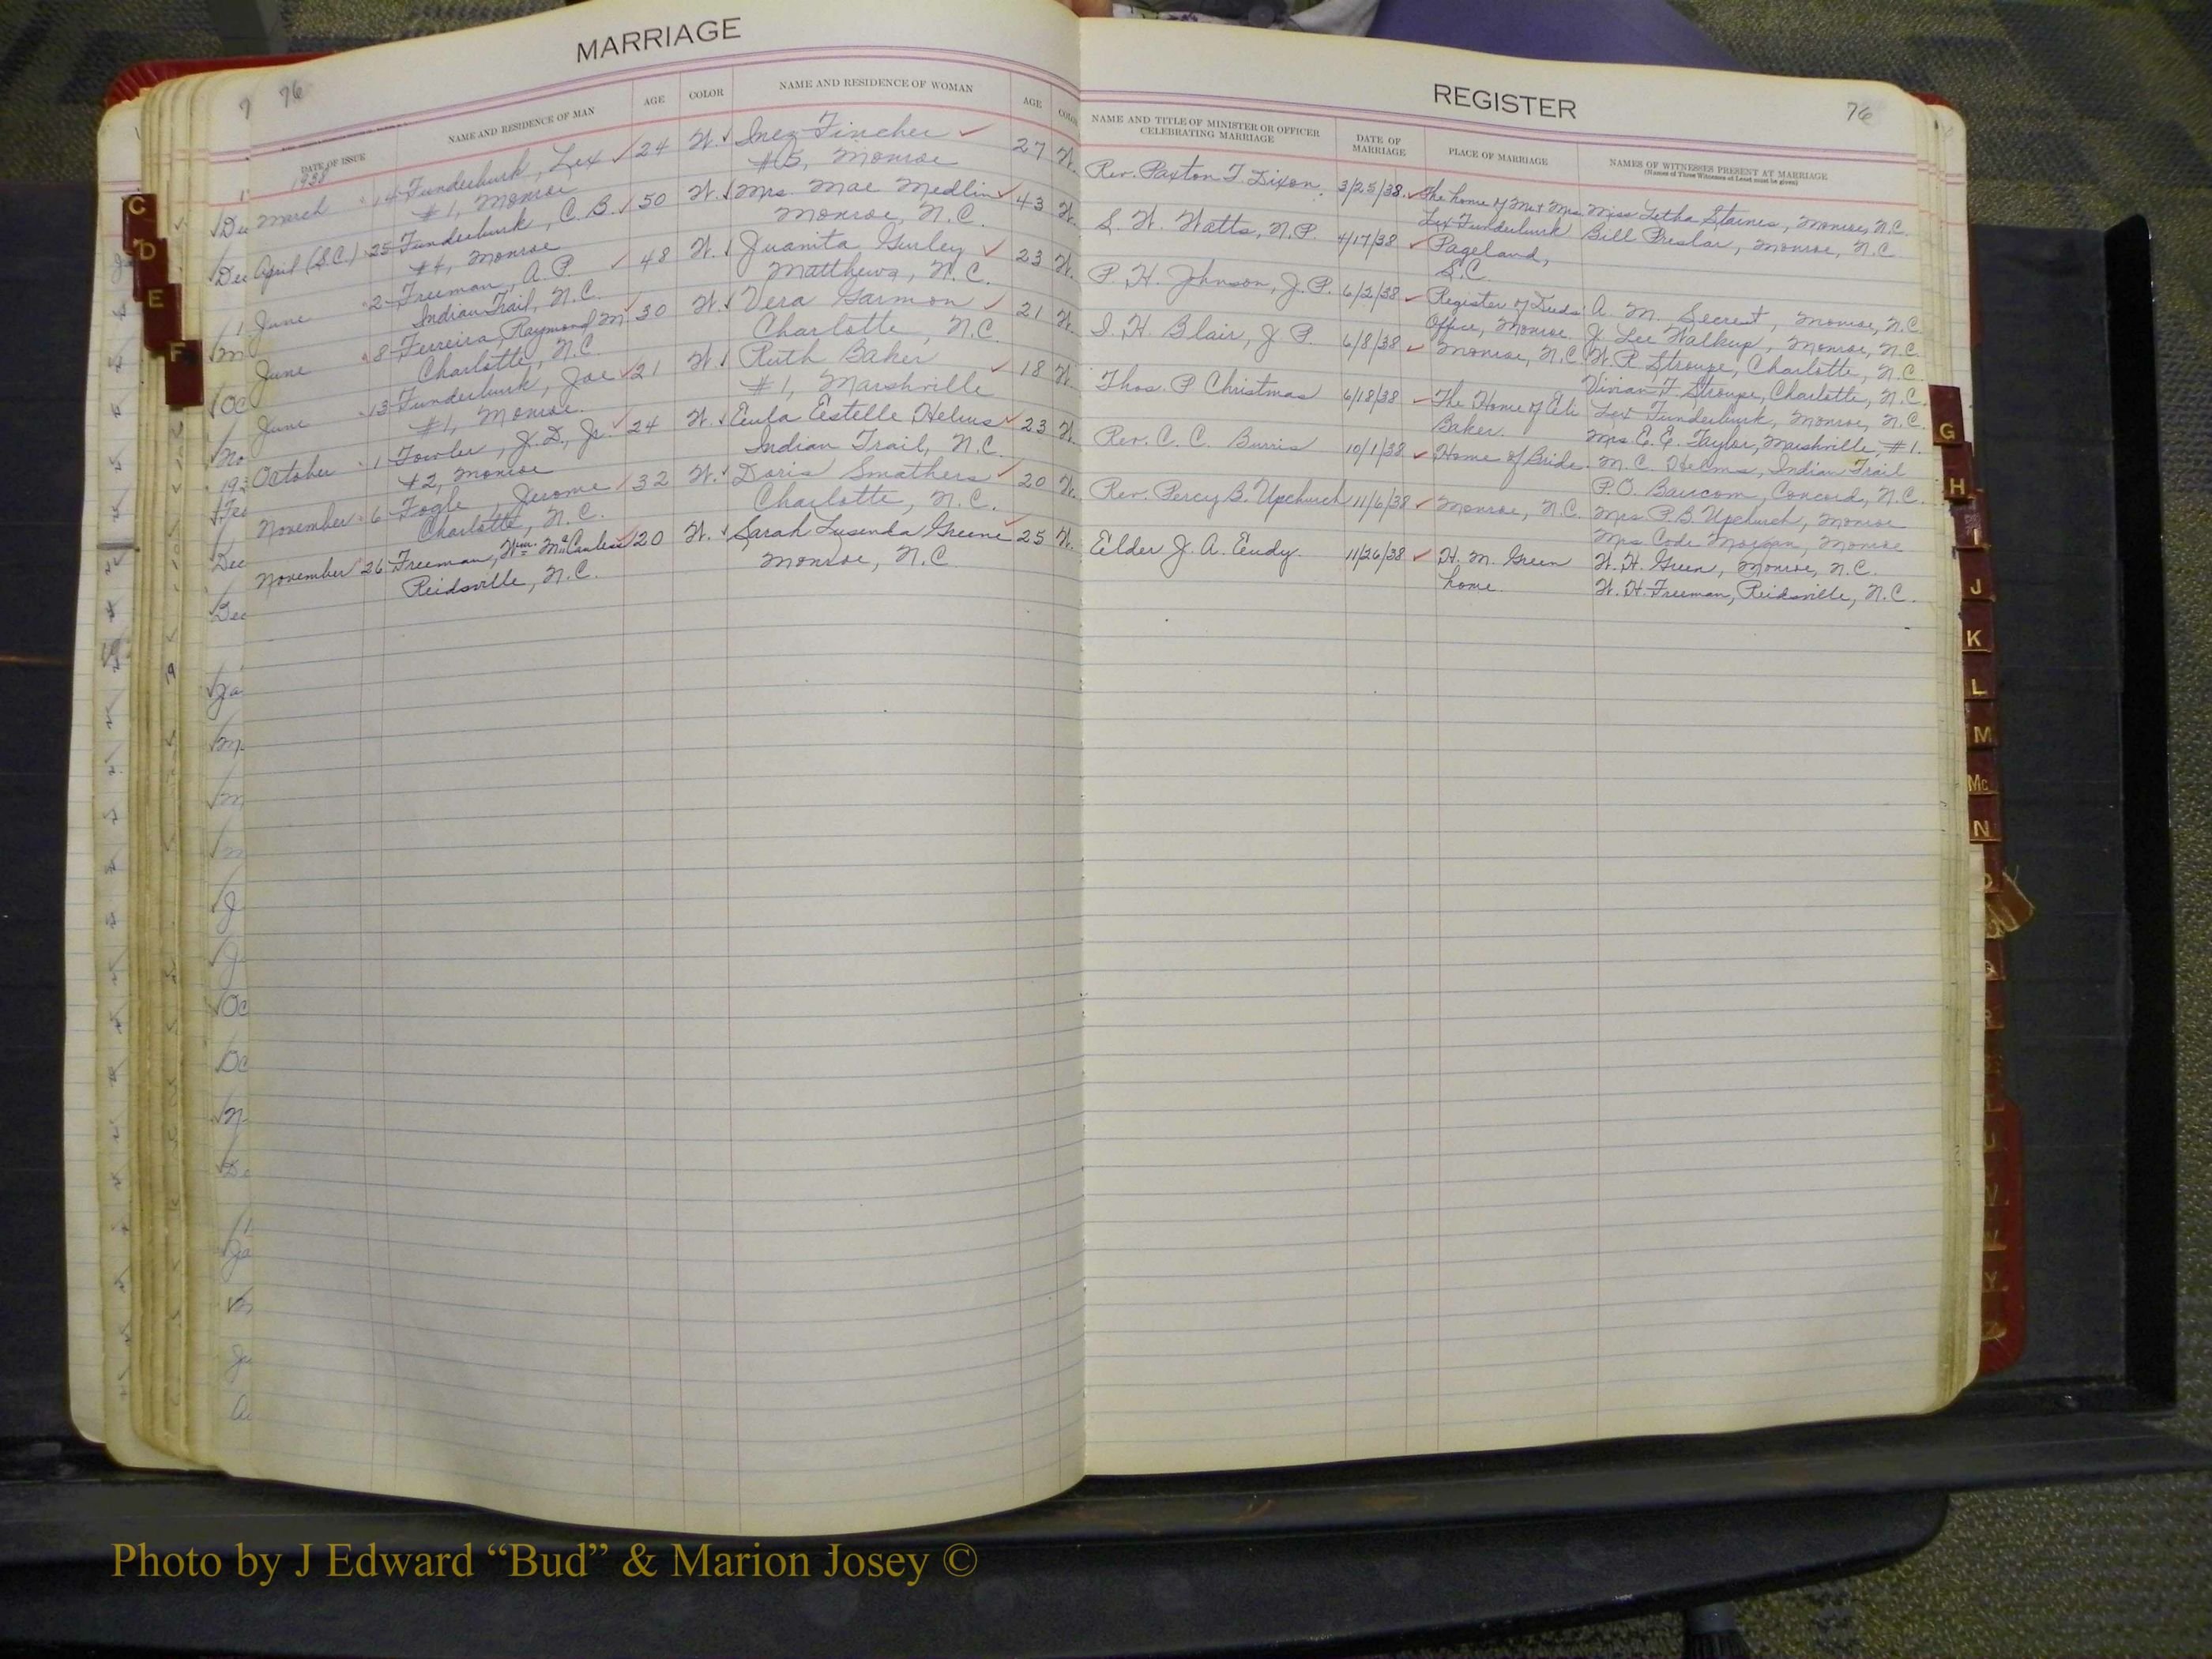 MARRIAGE
7 76
DATE OF ISSUE NAME AND RESIDENCE OF MAN AGE COLOR NAME AND RESIDENCE OF WOMAN AGE COLOR
1938
March 14 Funderburk, Lex 24 W. Inez Fincher 27 W.
#1, Monroe #5, Monroe
April (S.C.) 25 Funderburk, C. B. 50 W. Mrs. Mae Medlin 43 W.
#4, Monroe Monroe, N.C.
June 2 Freeman, A. P. 48 W. Juanita Gurley 23 W.
Indian Trail, N.C. Matthews, N.C.
June 8 Ferreira, Raymond M 30 W. Vera Garmon 21 W.
Charlotte, N.C. Charlotte, N.C.
June 13 Funderburk, Joe 21 W. Ruth Baker 18 W.
#1, Monroe. #1, Marshville
October 1 Fowler, J. D., Jr. 24 W. Eula Estelle Helms 23 W.
#2, Monroe Indian Trail, N.C.
November 6 Fogle, Jerome 32 W. Doris Smathers 20 W.
Charlotte, N.C. Charlotte, N.C.
November 26 Freeman, Wm. McCanless 20 W. Sarah Lusenda Greene 25 W.
Reidsville, N.C. Monroe, N.C.
REGISTER
76
NAME AND TITLE OF MINISTER OR OFFICER CELEBRATING MARRIAGE DATE OF MARRIAGE PLACE OF MARRIAGE NAMES OF WITNESSES PRESENT AT MARRIAGE
(Names of Three Witnesses at Least must be given)
Rev. Paxton T. Dixon. 3/25/38. The home of Mr & Mrs Miss Letha Starnes, Monroe, N.C.
Lex Funderburk Bill Preslar, Monroe, N.C.
S. W. Watts, N.P. 4/17/38 Pageland,
S.C.
P. H. Johnson, J.P. 6/2/38 Register of Deeds A. M. Secrest, Monroe, N.C.
Office, Monroe. J. Lee Walkup, Monroe, N.C.
I. H. Blair, J P. 6/8/38 Monroe, N.C. W. R. Stroupe, Charlotte, N.C.
Vivian F. Stroupe, Charlotte, N.C.
Thos. P Christmas 6/18/38 The Home of Ele Lex Funderburk, Monroe, N.C.
Baker. Mrs. E. E. Taylor, Marshville, #1.
Rev. C. C. Burris 10/1/38 Home of Bride. M. C. Helms, Indian Trail
P.O. Baucom, Concord, N.C.
Rev. Percy B. Upchurch 11/6/38 Monroe, N.C. Mrs. P.B. Upchurch, Monroe
Mrs. Code Morgan, Monroe
Elder J. A. Eudy. 11/26/38 H. M. Green W. H. Green, Monroe, N.C.
home. W. H. Freeman, Reidsville, N.C.
C
D
E
F
G
H
I
J
K
L
M
Mc
N
Photo by J Edward “Bud” & Marion Josey ©